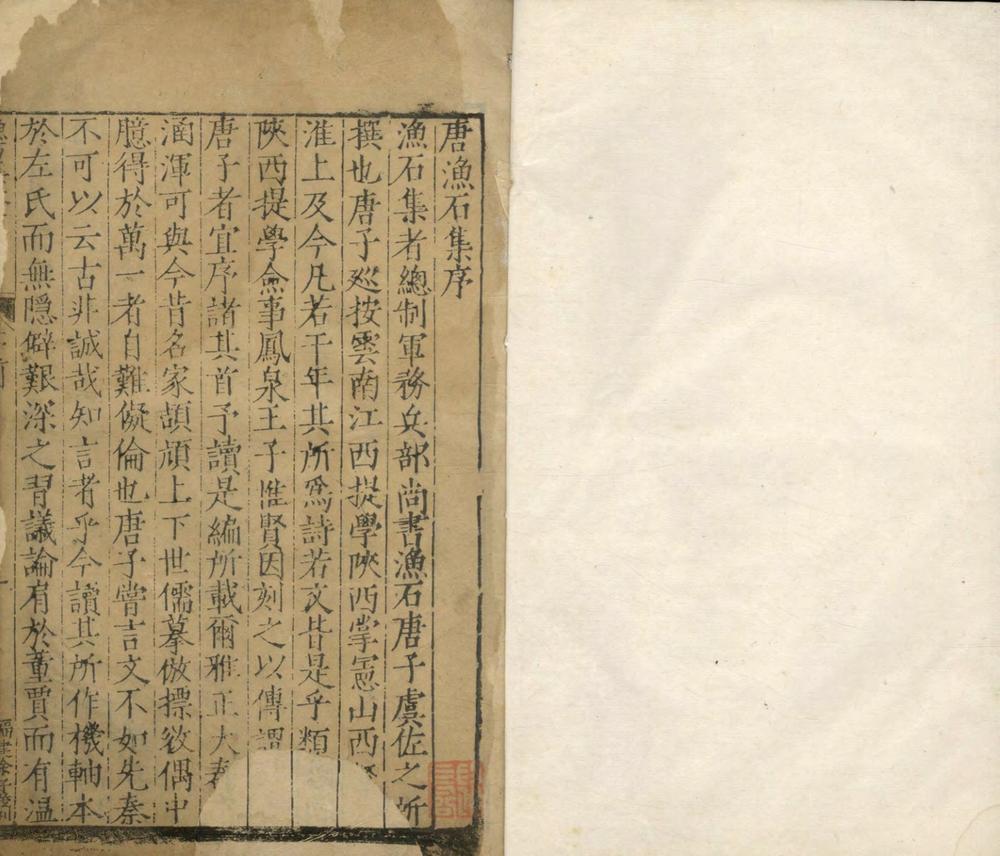 唐漁石集序
漁石集者總制軍務兵部尚書漁石唐子虞佐之所
撰也唐子廵按雲南江西提學陝西掌憲山西
淮上及今凡若干年其所爲詩若文皆是乎類
陝西提學僉事鳳泉王子惟賢因刻之以傳謂
唐子者宜序諸其首予讀是編所載爾雅正大
涵渾可與今昔名家頡頏上下世儒摹倣摽敚偶中
臆得於萬一者自難儗倫也唐子嘗言文不如先秦
不可以云古非誠哉知言者乎今讀其所作機軸本
於左氏而無隱僻艱深之習議論有於董賈而有温